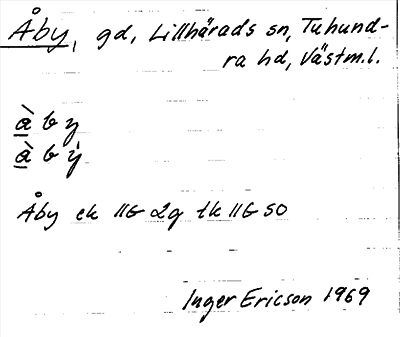 Åby, gd, Lillhärads sn, Tuhund-
ra hd, Västm.l.
à̱ b y
à̱ b ẏ
Åby ek 11G 2g tk 11G SO
Inger Ericson 1969